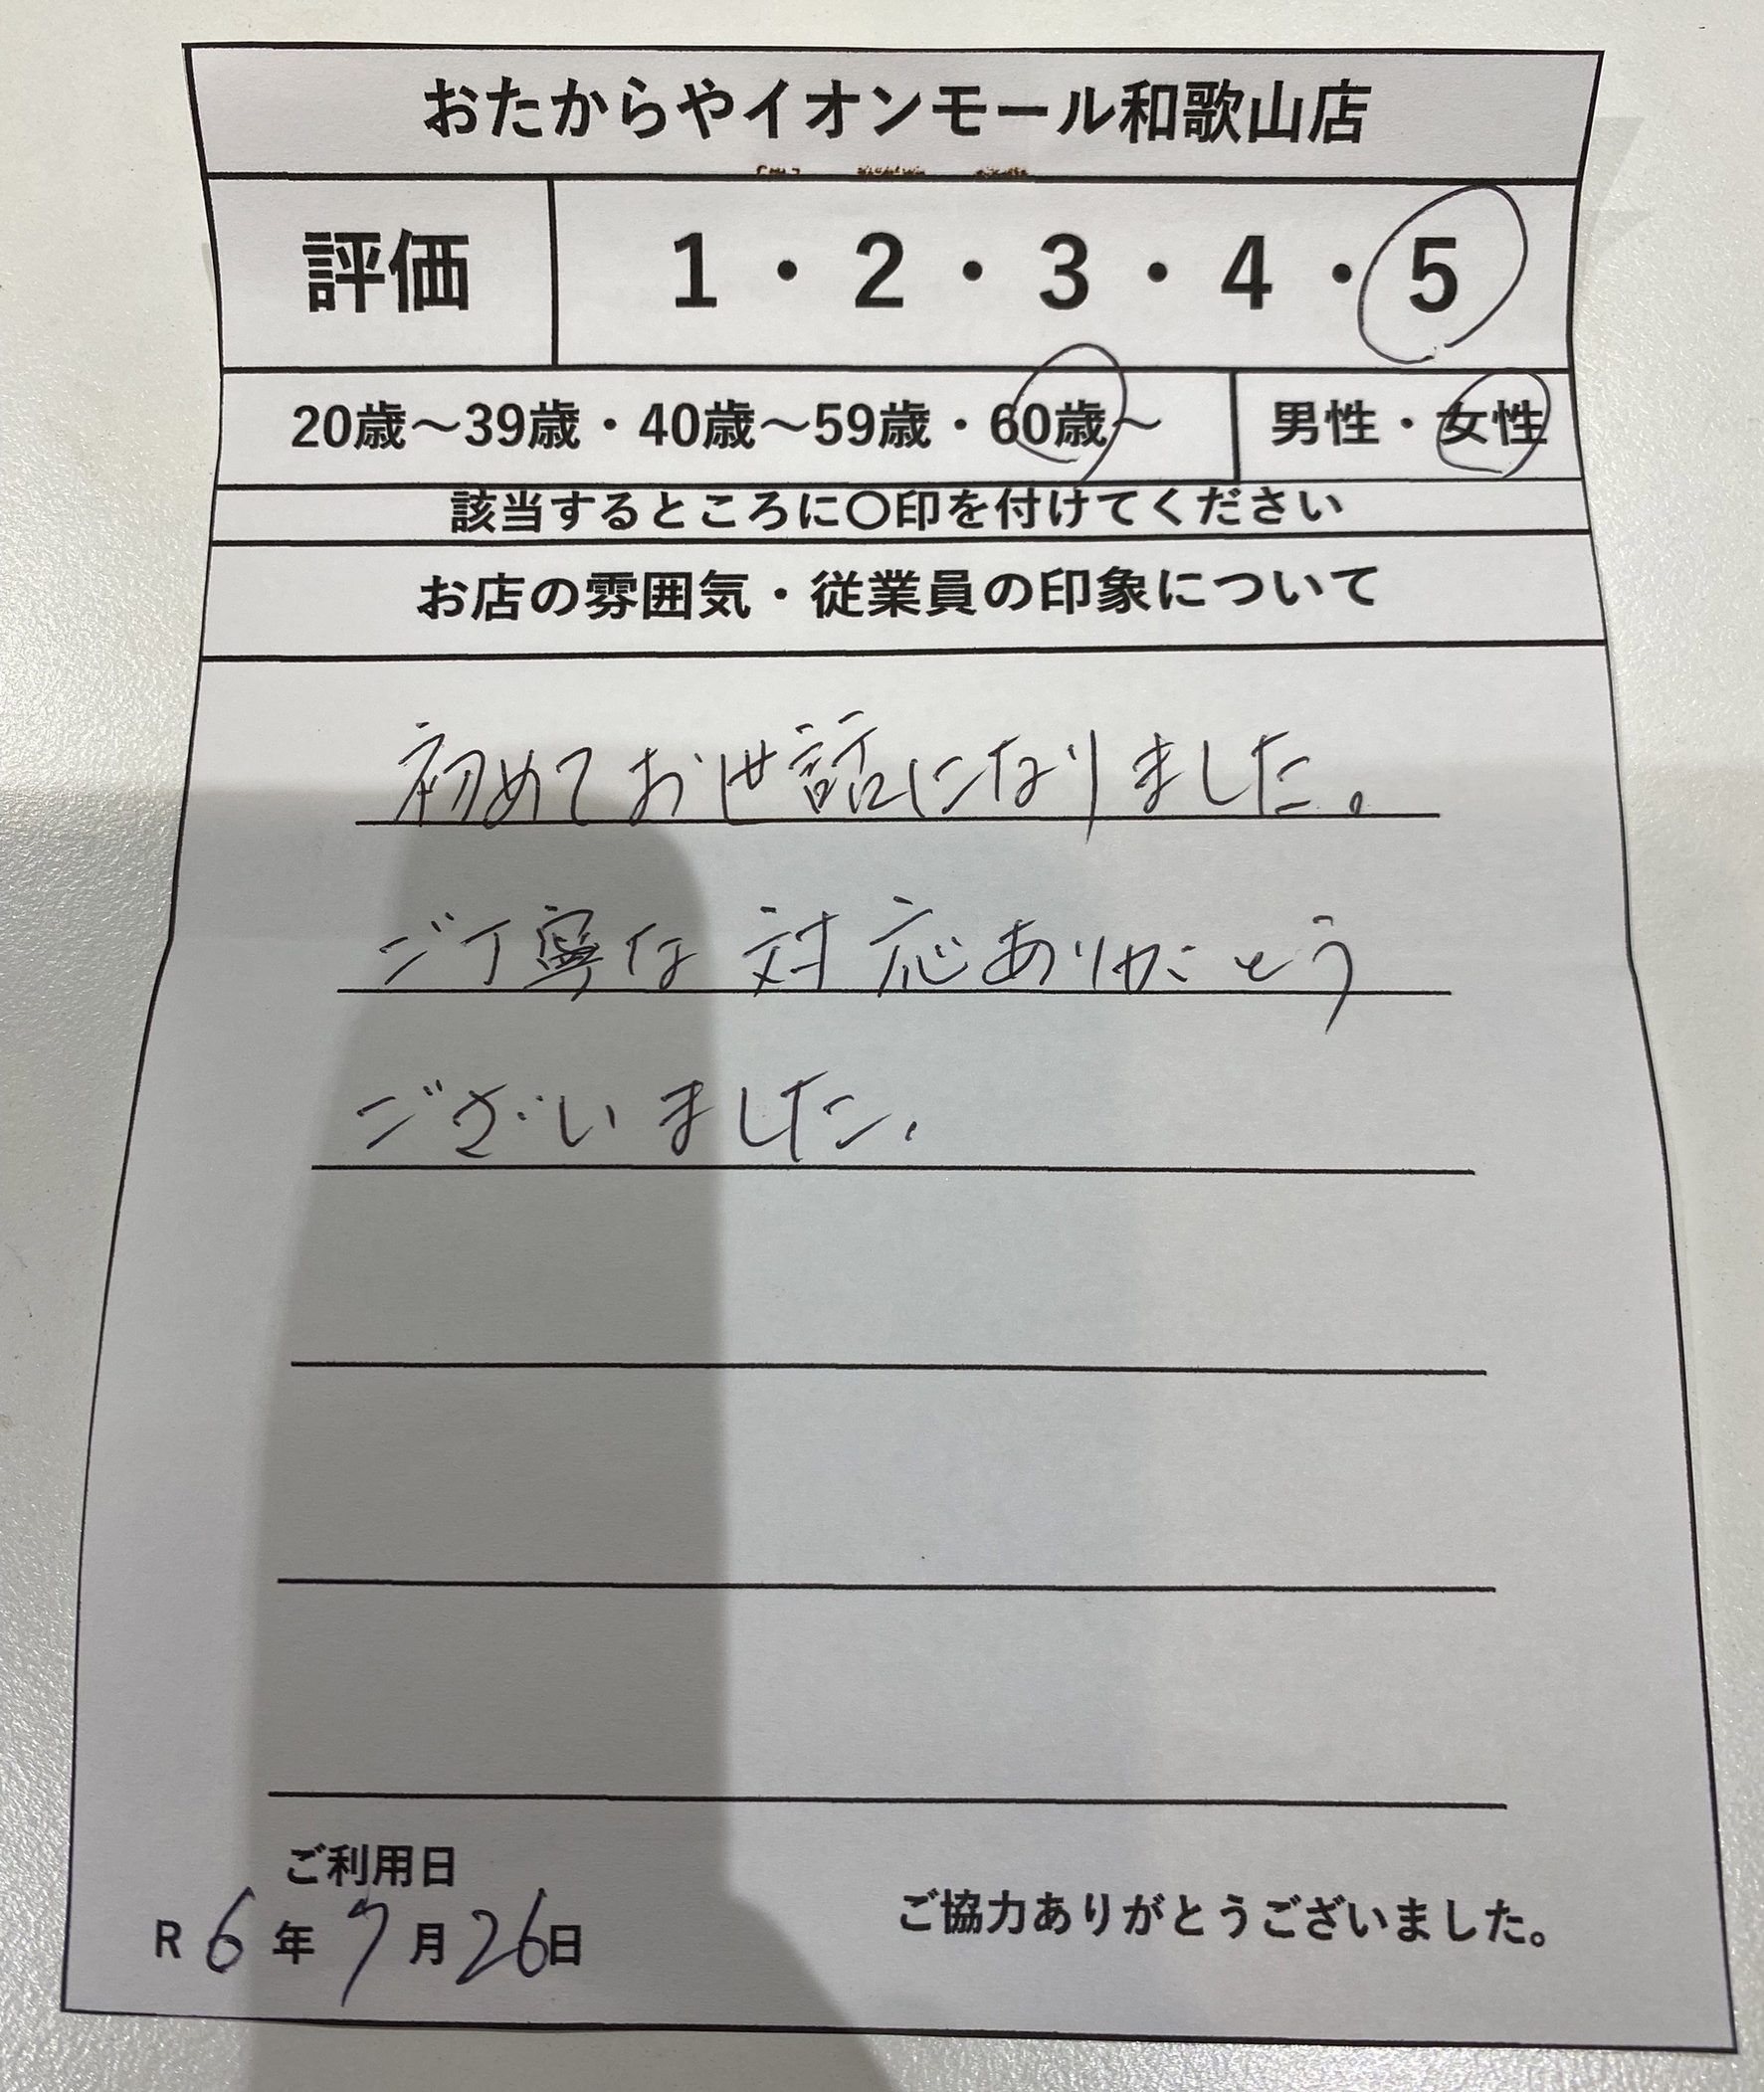 おたからやイオンモール和歌山店
評価 1・2・3・4・5
20歳～39歳・40歳～59歳・60歳～ 男性・女性
該当するところに〇印を付けてください
お店の雰囲気・従業員の印象について
初めてお世話になりました。
ご丁寧な対応ありがとう
ございました.
ご利用日
R6年7月26日
ご協力ありがとうございました。